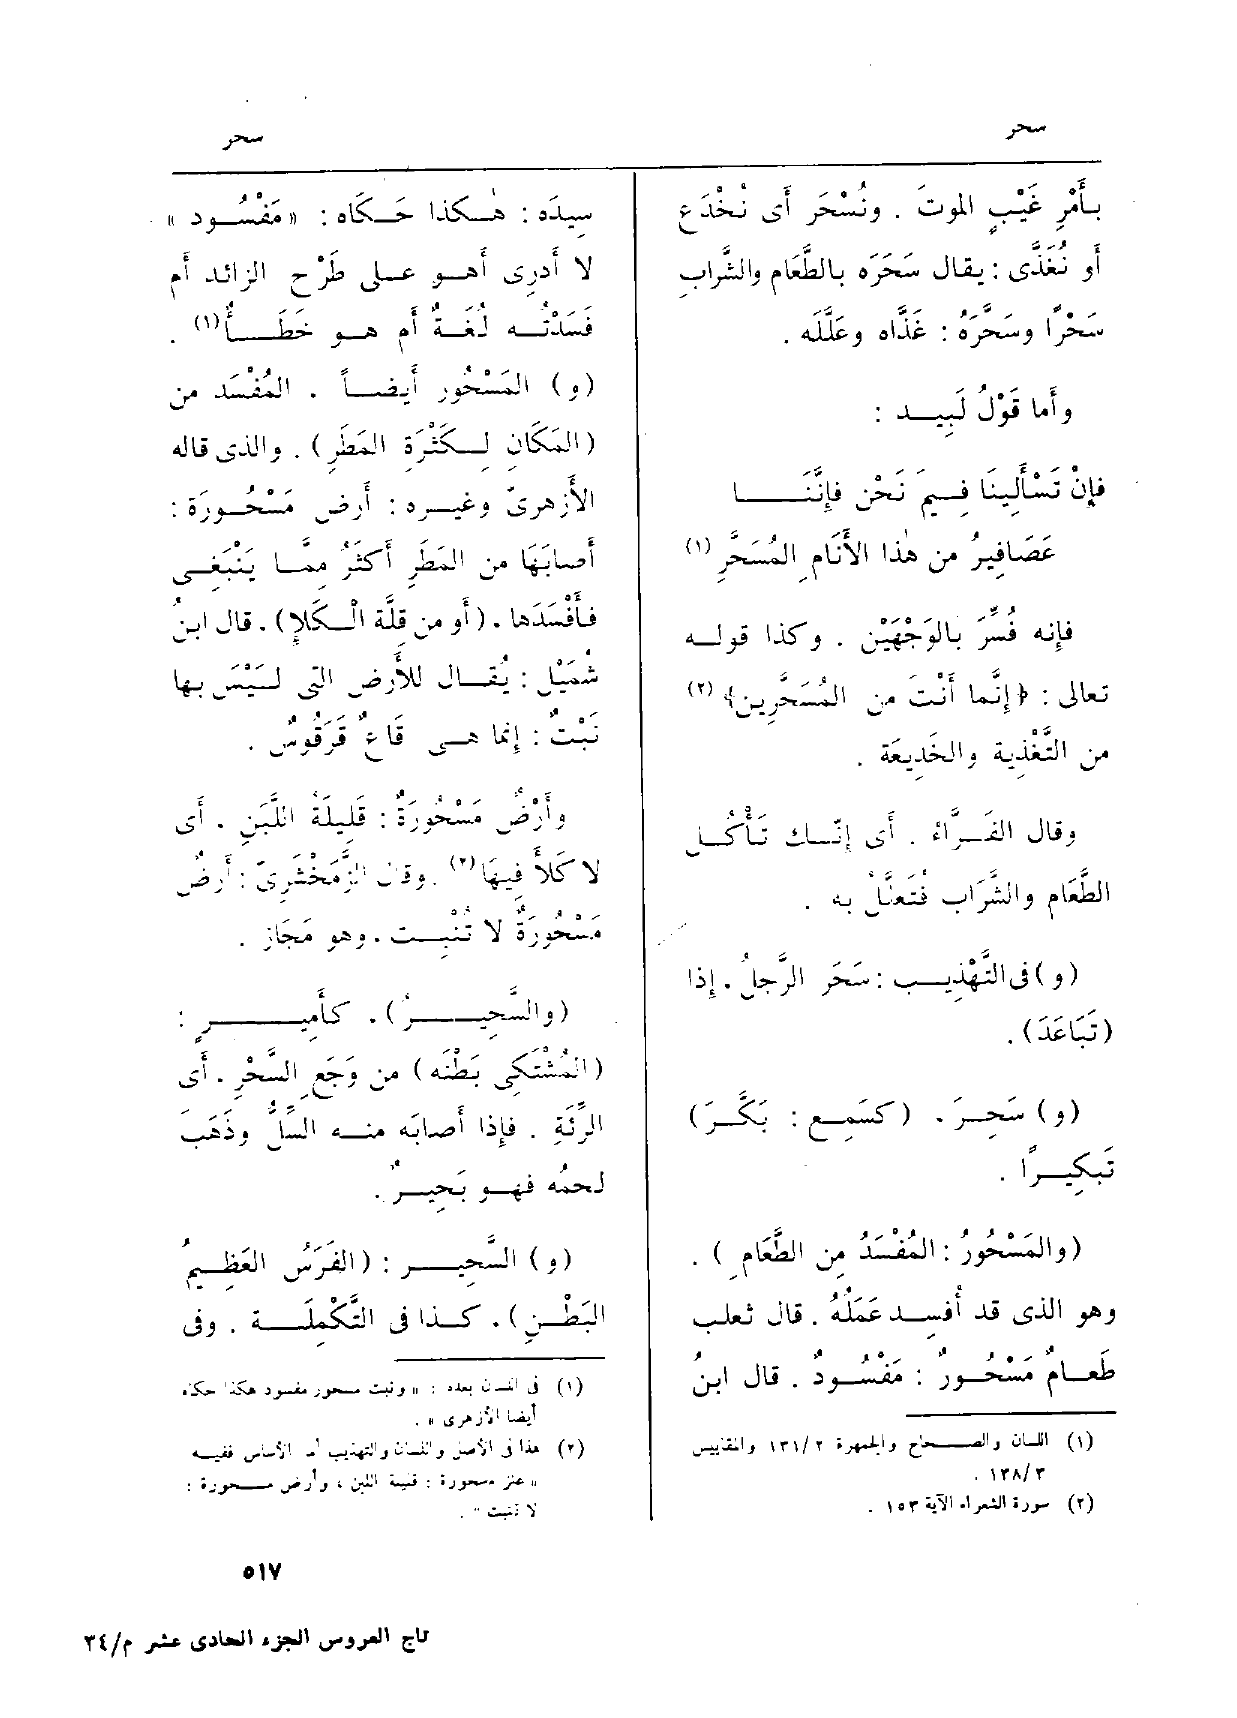 سحر
بأَمْرِ غَيْبِ الموتَ . ونُسْحَر أَى نُخْدَع
أَو نُغَذَّى : يقال سَحَرَه بالطَّعَام والشَّرابِ
سَحْرًا وسَحَّرَهُ : غَذَّاه وعَلَّلَه .
وأَما قَوْلُ لَبِيد :
فإِنْ تَسْأَلِينَا فِيمَ نَحْن فإِنَّنَا
عَصَافِيرُ من هٰذا الأَنَامِ المُسَحَّرِ (١)
فإِنه فُسِّرَ بالوَجْهَيْن . وكذا قوله
تعالى : ﴿إِنَّما أَنْتَ من المُسَحَّرِين﴾ (٢)
من التَّغْذِية والخَدِيعَة .
وقال الفَرَّاءُ . أَى إِنّك تَأْكُل
الطَّعَام والشَّرَاب فتُعَلَّلُ به .
(و) فى التَّهْذِيب : سَحَر الرَّجلُ . إِذا
(تَبَاعَدَ) .
(و) سَحِرَ . (كسَمِع : بَكَّرَ)
تَبكِيرًا .
(والمَسْحُورُ : المُفْسَدُ مِن الطَّعَامِ ) .
وهو الذى قد أُفسِد عَمَلُهُ . قال ثعلب
طَعامٌ مَسْحُورٌ : مَفْسُودٌ . قال ابنُ
(١) اللسان والصحاح والجمهرة ١٣١/٢ والمقاييس
١٣٨/٣ .
(٢) سورة الشعراء الآية ١٥٣ .
سحر
سِيدَه : هٰكذا حَكَاه : « مَفْسُود »
لا أَدرِى أَهو على طَرْح الزائد أَم
فَسَدْتُه لُغَةٌ أَم هو خَطَأٌ (١) .
(و) المَسْحُور أَيضاً . المُفْسَد من
(المَكَانِ لِكَثْرَةِ المَطَرِ) . والذى قاله
الأَزهرىّ وغيره : أَرض مَسْحُورَة :
أَصابَهَا من المَطَرِ أَكثَرُ مِمَّا يَنْبَغِى
فأَفْسَدَها . (أَو من قِلَّة الْكَلإِ) . قال ابنُ
شُمَيْل : يُقال للأَرض التى لَيْسَ بها
نَبْتٌ : إِنما هى قَاعٌ قَرَقُوسٌ .
وأَرْضٌ مَسْحُورَةٌ : قَلِيلَةُ اللَّبَنِ . أَى
لا كَلأَ فِيهَا (٢) . وقال الزَّمَخْشَرِىّ : أَرضٌ
مَسْحُورَةٌ لا تُنْبِت . وهو مَجَاز .
(والسَّحِيرُ) . كأَمِيرٍ :
(المُشْتَكِى بَطْنَه) من وَجَعِ السَّحْرِ . أَى
الرِّئَةِ . فإِذا أَصابَه منه السِّلُّ وذَهَبَ
لحمُه فهو بَحِيرٌ .
(و) السَّحِير : (الفَرَسُ العَظِيمُ
البَطْنِ) . كذا فى التَّكْمِلَة . وفى
(١) فى اللسان بعده : « ونبت مسحور مفسود هكذا حكاه
أيضا الأزهرى » .
(٢) هذا فى الأصل واللسان والتهذيب أما الأساس ففيه
« عنز مسحورة : قليلة اللبن ، وأرض مسحورة :
لا تنبت » .
٥١٧
تاج العروس الجزء الحادى عشر م/٣٤